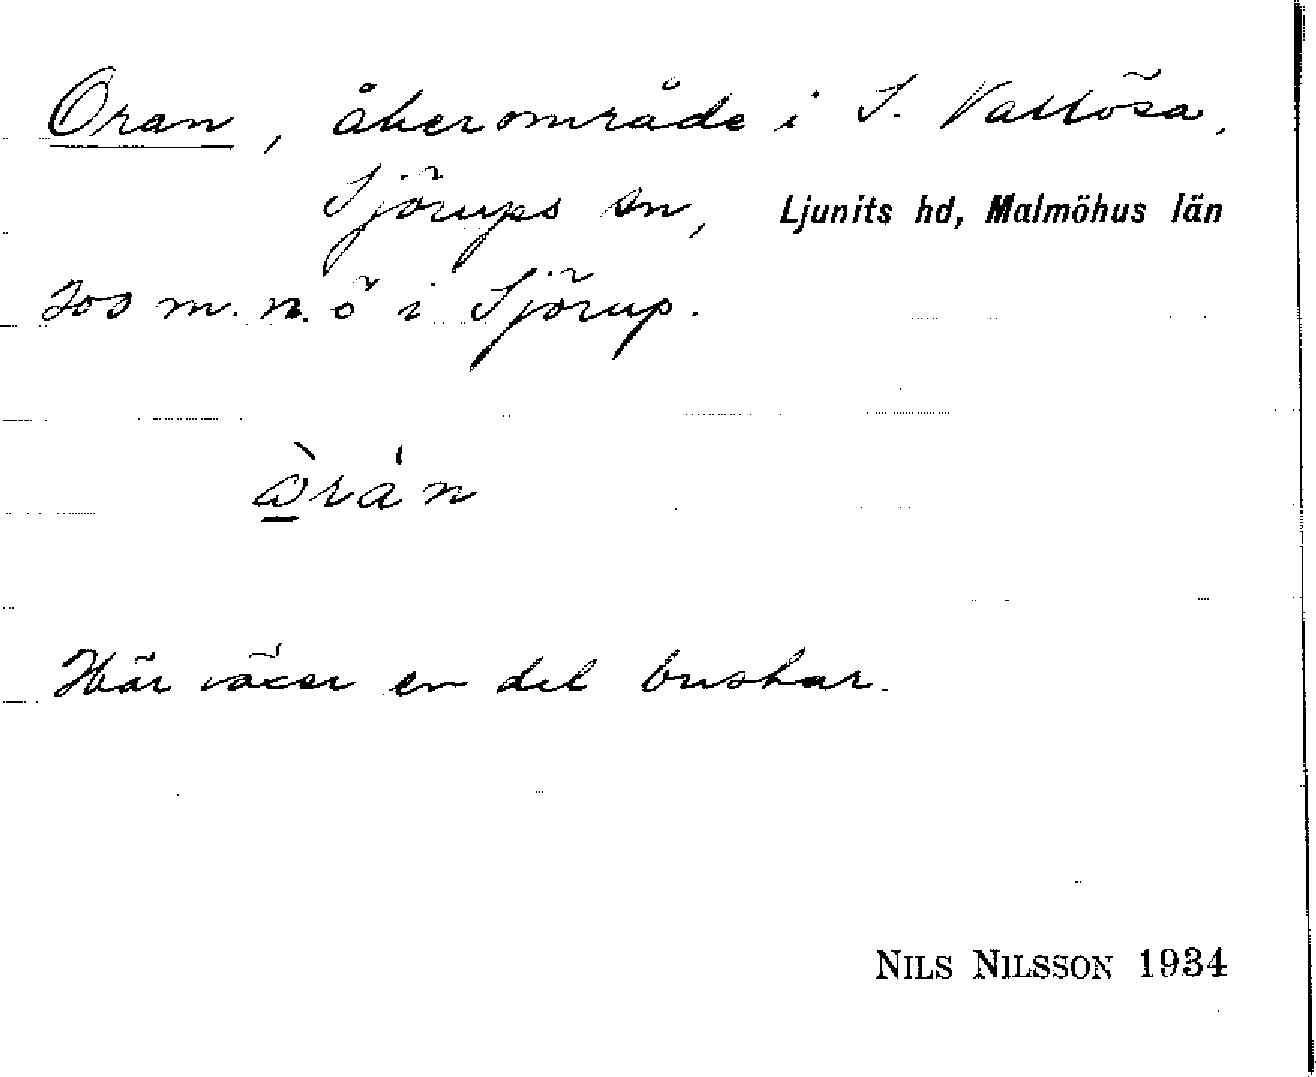 Oran, åkerområde i S. Vallösa,
Sjörups sn, Ljunits hd, Malmöhus län
300 m. n. ö i Sjörup.
Här växer en del buskar.
NILS NILSSON 1934